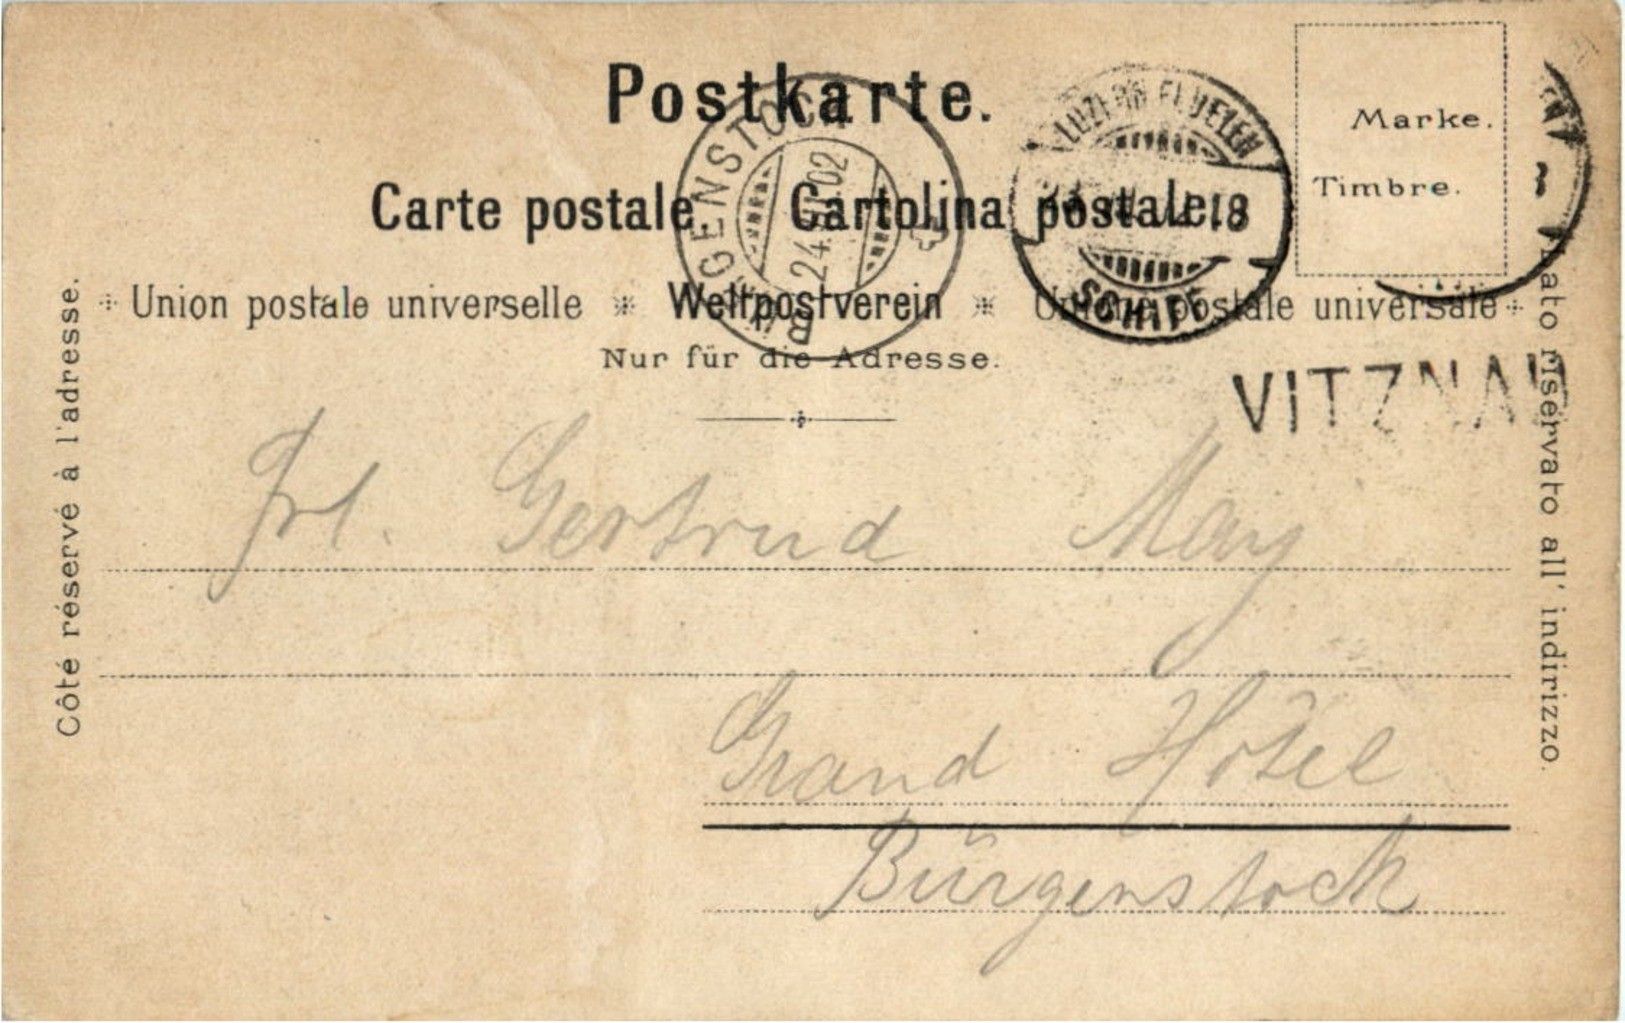 Postkarte.
Carte postale. Cartolina postale.
Union postale universelle Weltpostverein Unione postale universale
Nur für die Adresse.
Côté réservé à l'adresse.
Lato riservato all' indirizzo.
Marke.
Timbre.
BÜRGENSTOCK
24. 02
LUZERN FLUELEN
SCHIFF
VITZNAU
Frl. Gertrud May
Grand Hôtel
Bürgenstock